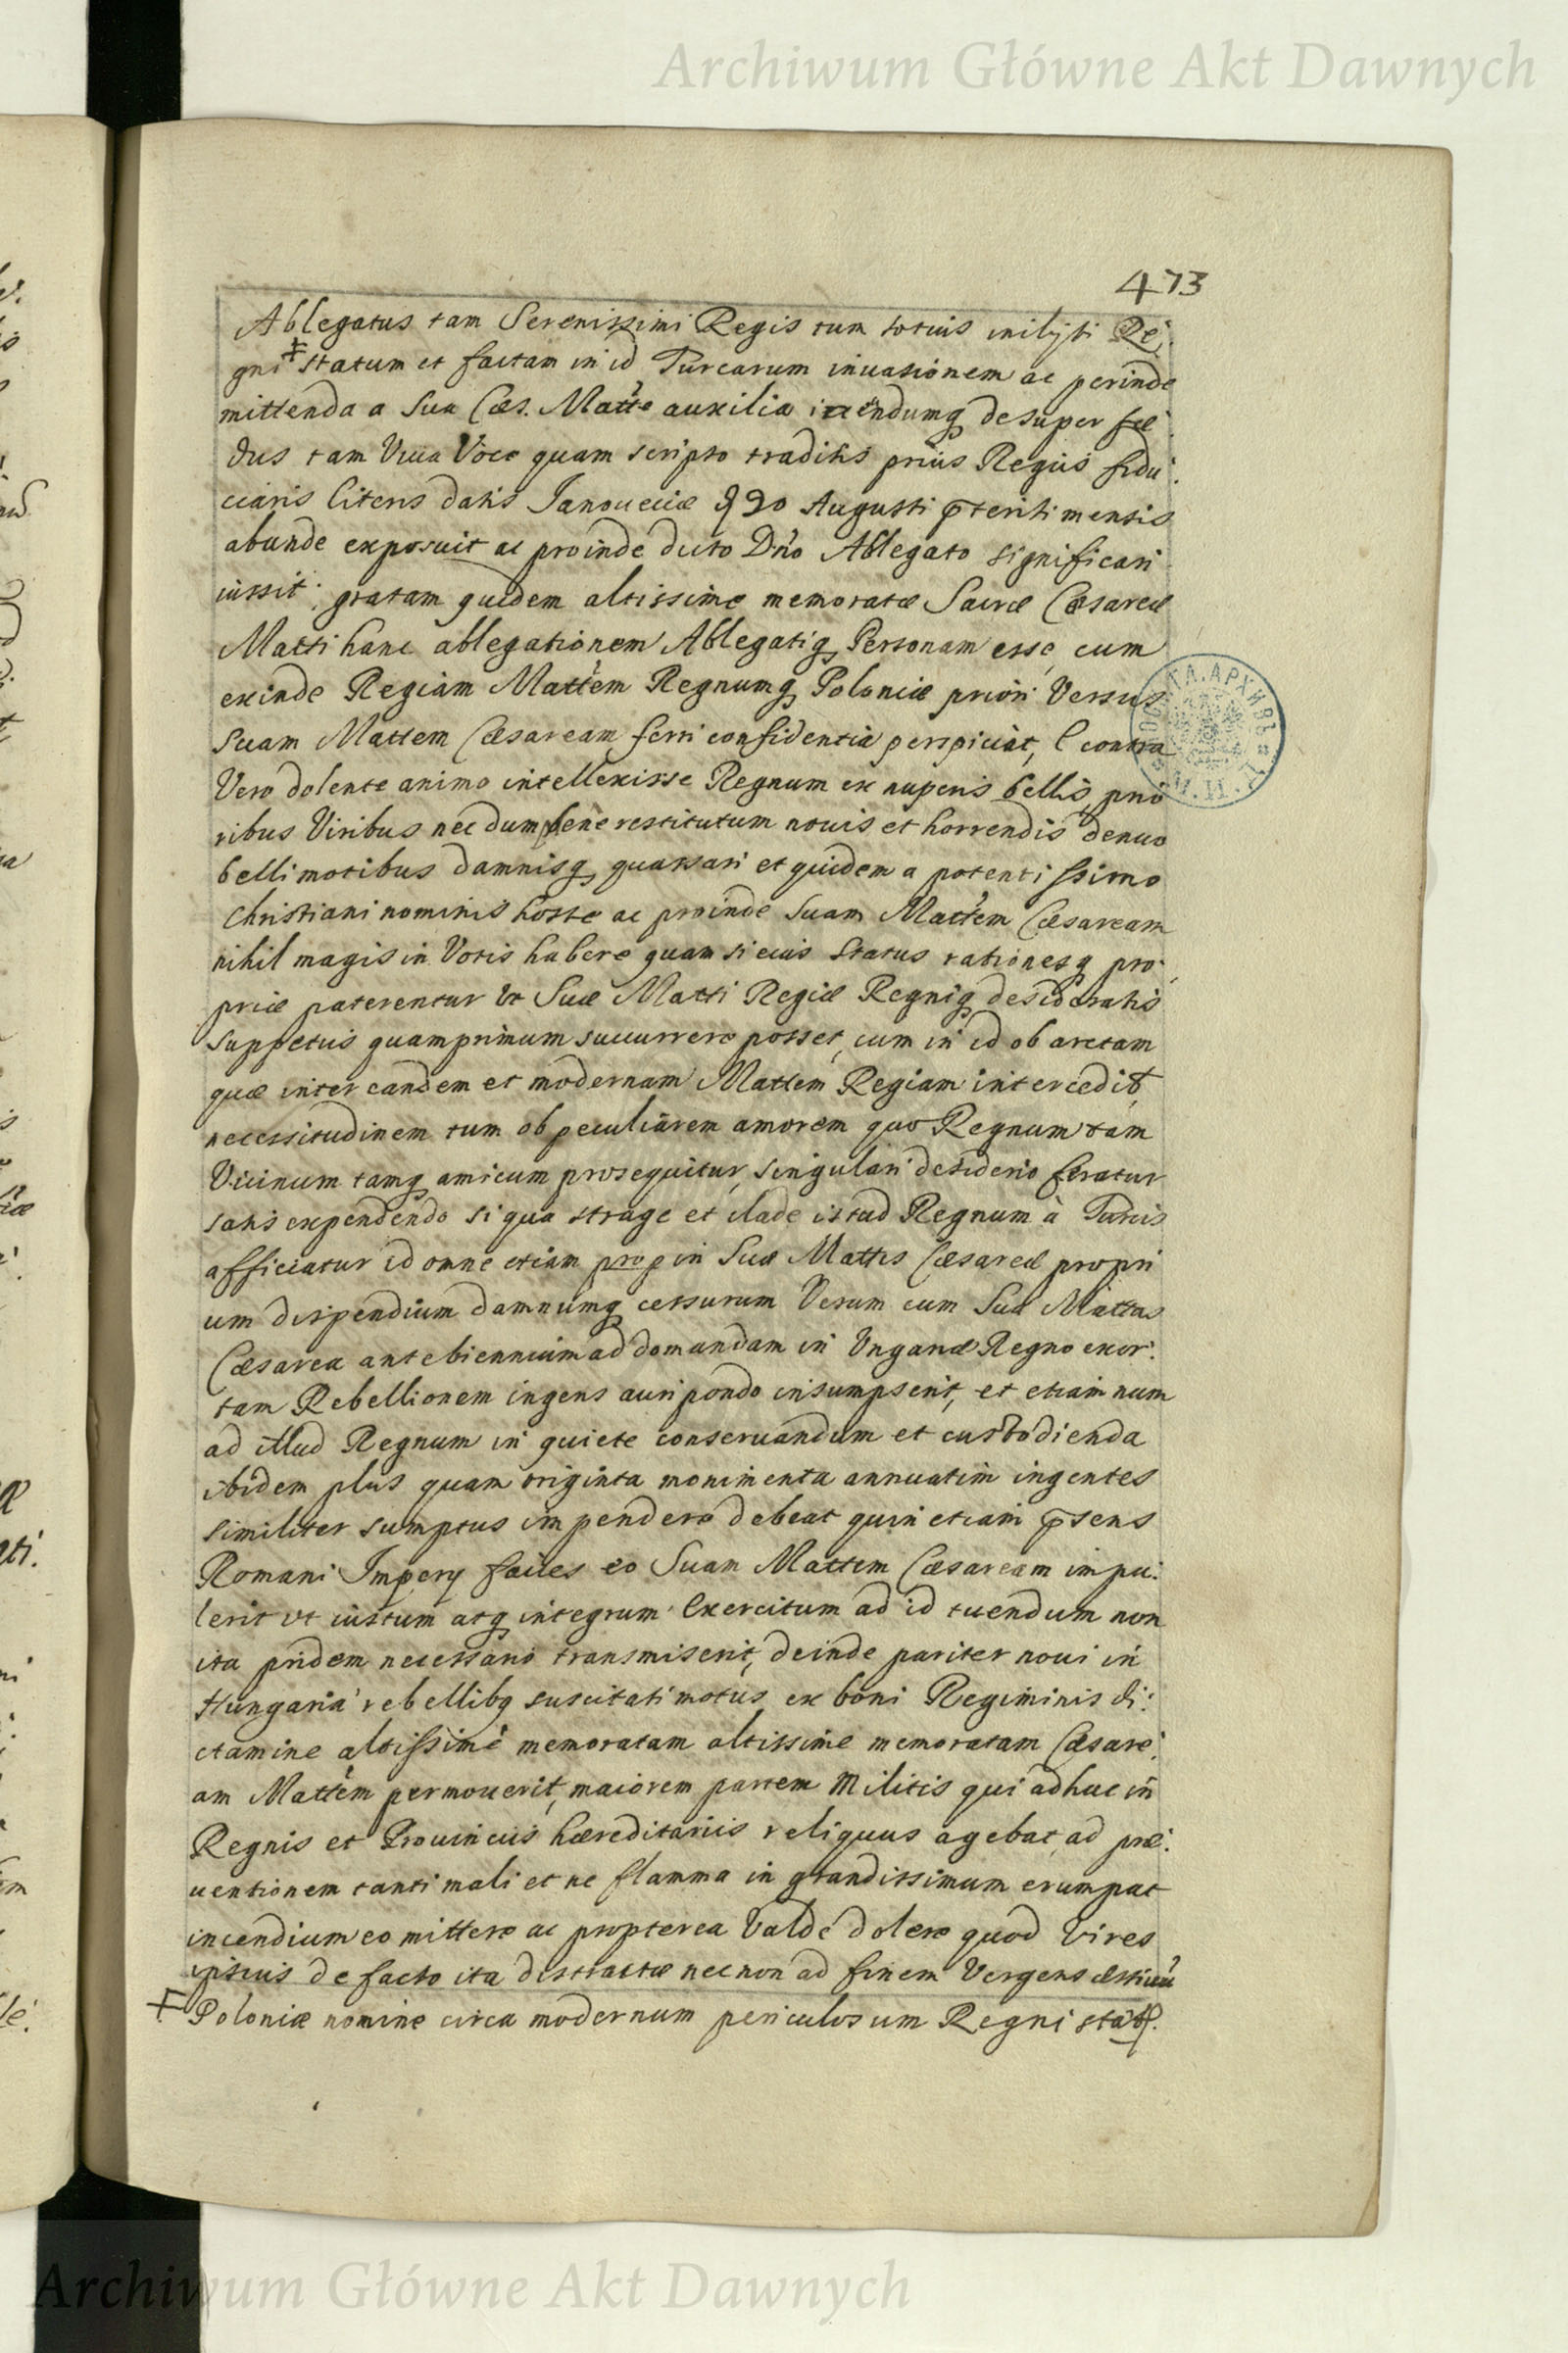 Archiwum Główne Akt Dawnych
473
Ablegatus tam Serenissimi Regis tum totius inclyti Re,
gni ‡ statum et factam in id Turcarum inuasionem ac perinde
mittenda a Sua Cæs. Matte auxilia desuper fœ
dus tam Viua Voce quam scripto traditis prius Regiis fidu,
ciaris literis datis Janoueciæ 20 Augusti p̄teriti mensis
abunde exposuit ac proinde dicto Dn̄o Ablegato significari
iussit; gratam quidem altissime memoratæ Sacræ Cæsareæ
Matti hanc ablegationem Ablegatiq Personam esse, cum
exinde Regiam Mattem Regnumq Poloniæ priori Versus
Suam Mattem Cæsaream ferri confidentia perspiciat, E contra
Vero dolente animo intellexisse Regnum ex nuperis bellis, prio
ribus Viribus nec dum bene restitutum nouis et horrendis denuo
belli motibus damnisq quassari et quidem a potentissimo
Christiani nominis hoste ac proinde Suam Mattem Cæsaream
nihil magis in Votis habere quam si eius status rationesq pro,
priæ paterentur Vt Suæ Matti Regiæ Regniq desideratis
suppetiis quamprimum succurrere posset, cum in id ob arctam
quæ inter eandem et modernam Mattem Regiam intercedit,
necessitudinem tum ob peculiarem amorem quo Regnum tam
Vicinum tamq amicum prosequitur, singulari desiderio feratur
satis expendendo si qua strage et clade istud Regnum à Turcis
afficiatur id omne etiam in Suæ Mattis Cæsareæ propri
um dispendium damnumq cessurum Verum cum Sua Mattas
Cæsarea ante biennium ad domandam in Vngariæ Regno exor:
tam Rebellionem ingens auri pondo insumpserit, et etiam num
ad illud Regnum in quiete conseruandum et custodienda
ibidem plus quam triginta monimenta annuatim ingentes
similiter sumptus impendere debeat quin etiam p̄sens
Romani Impery facies eo Suam Mattem Cæsaream impu:
lerit vt iustum atq integrum Exercitum ad id tuendum non
ita pridem necessario transmiserit, deinde pariter noui in
Hungaria rebellibq suscitati motus ex boni Regiminis di:
ctamine altissimè memoratam altissime memoratam Cæsare,
am Mattem permouerit, maiorem partem Militis qui adhuc in
Regnis et Prouinciis hæreditariis reliquus agebat ad præ:
uentionem tanti mali et ne flamma in grandissimum erumpat
incendium eo mittere ac propterea Valdé dolere quod Vires
ipsius de facto ita distractæ necnon ad finem Vergens æstiuū
‡ Poloniæ nomine circa modernum periculosum Regni
Archiwum Główne Akt Dawnych